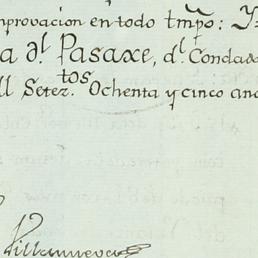 nprovacion en todo tmpo: Y
a dl Pasaxe, dl Condad
ll Setez.tos Ochenta y cinco an
Villanueva